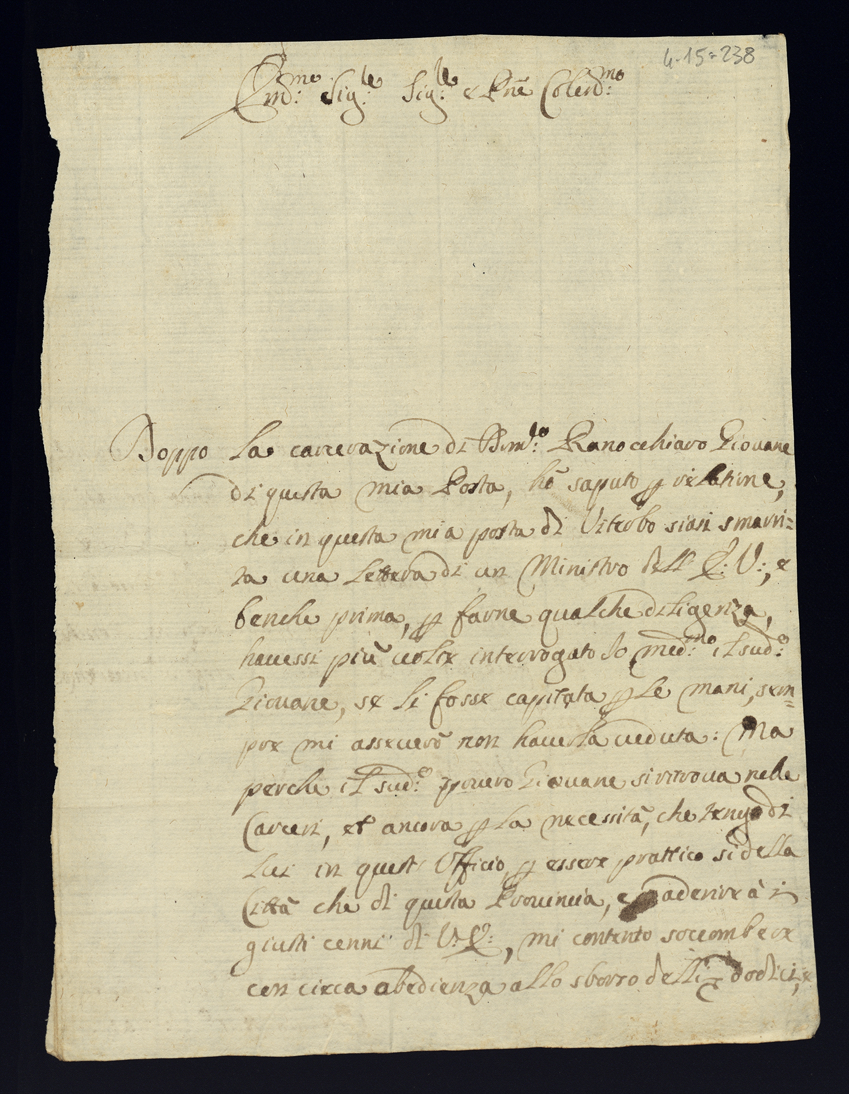 4-15-238
Em:mo Sig:le Sig:le e Pne Colend:mo
Doppo la carcerazione di Bern:do Ranocchiaro Giovane
di questa mia Posta, hò saputo p relatione,
che in questa mia posta di Viterbo siasi smarri=
ta una lettera di un Ministro dell' E: V:, e
benche prima, p farne qualche diligenza,
havessi più volte interrogato lo med:mo il sud:o
Giovane, se li fosse capitata p le mani, sem=
pre mi asseverò non haverla veduta: Ma
perche il sud:o povero Giovane si ritrova nelle
Carceri, et ancora p la necessità, che tengo di
lui in quest' Officio, p essere prattico sì della
Città che di questa Provincia, e aderire à i
giusti cenni di V: E:, mi contento soccombere
con cieca obedienza allo sborzo delli dodici, e